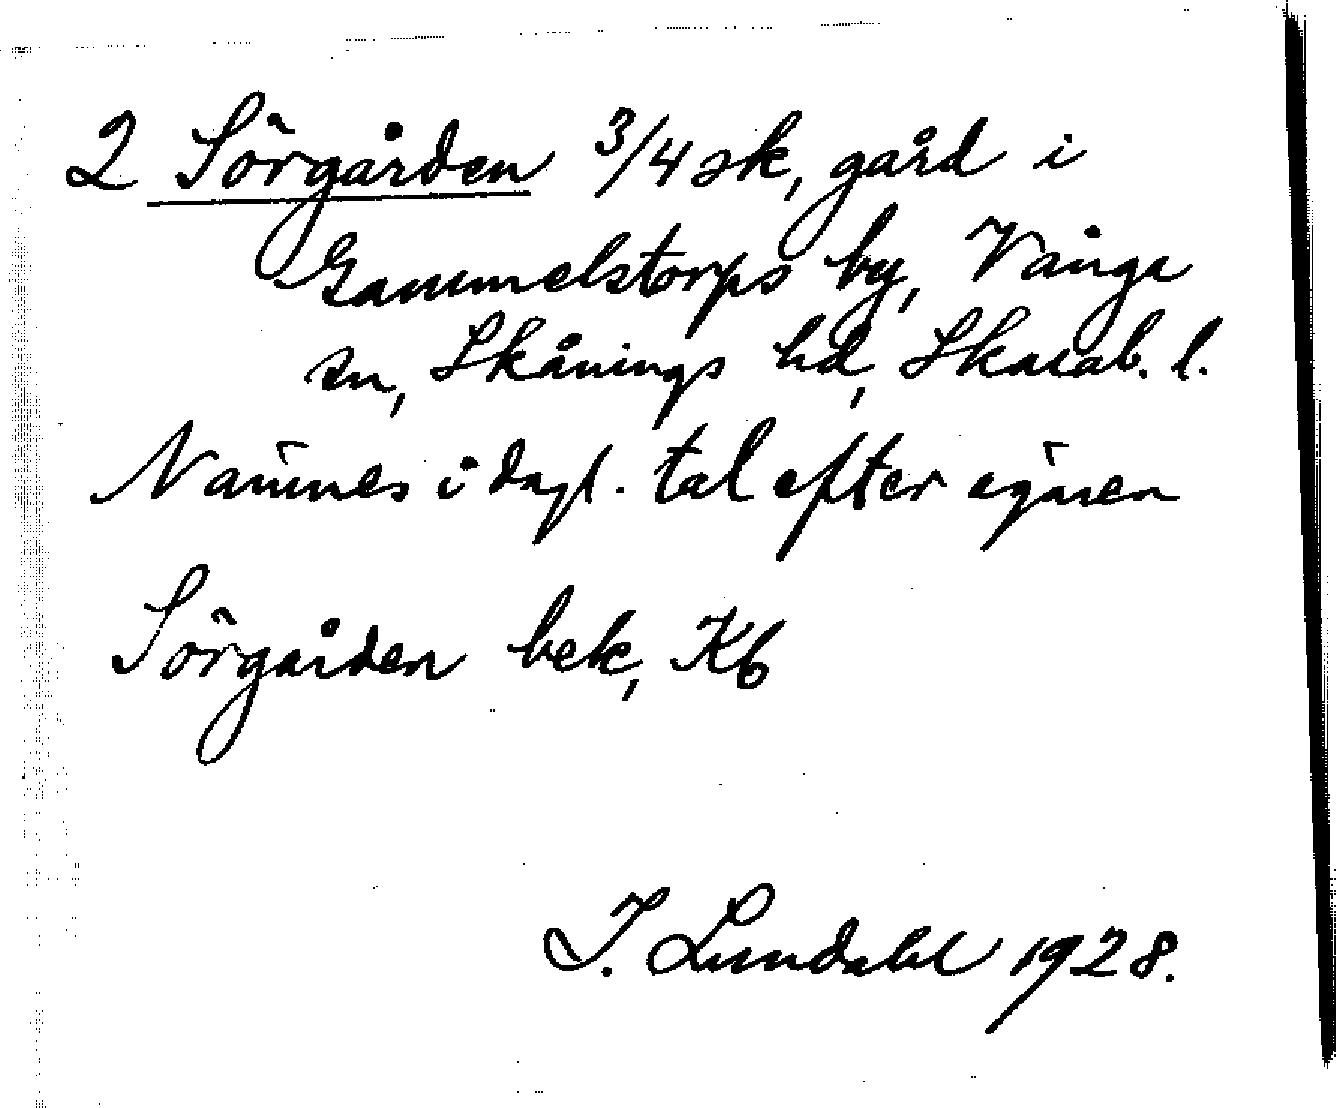 2 Sörgården 3/4 sk, gård i
Gammelstorps by, Vånga
sn, Skånings hd, Skarab. l.
Nämnes i dagl. tal efter ägaren
Sörgården bek, Kb
I. Lundahl 1928.